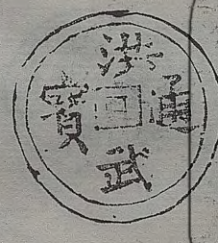 洪武通寶